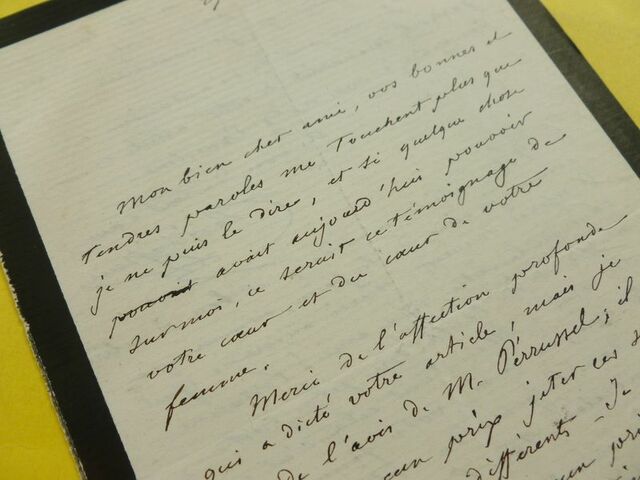 Mon bien cher ami, vos bonnes et
tendres paroles me touchent plus que
je ne puis le dire, et si quelque chose
pouvait avait aujourd'hui pouvoir
sur moi, ce serait ce témoignage de
votre cœur et du cœur de votre
femme.
Merci de l'affection profonde
qui a dicté votre article, mais je
de l'avis de M. Pérrussel; il
prix jeter ces
différents - Je